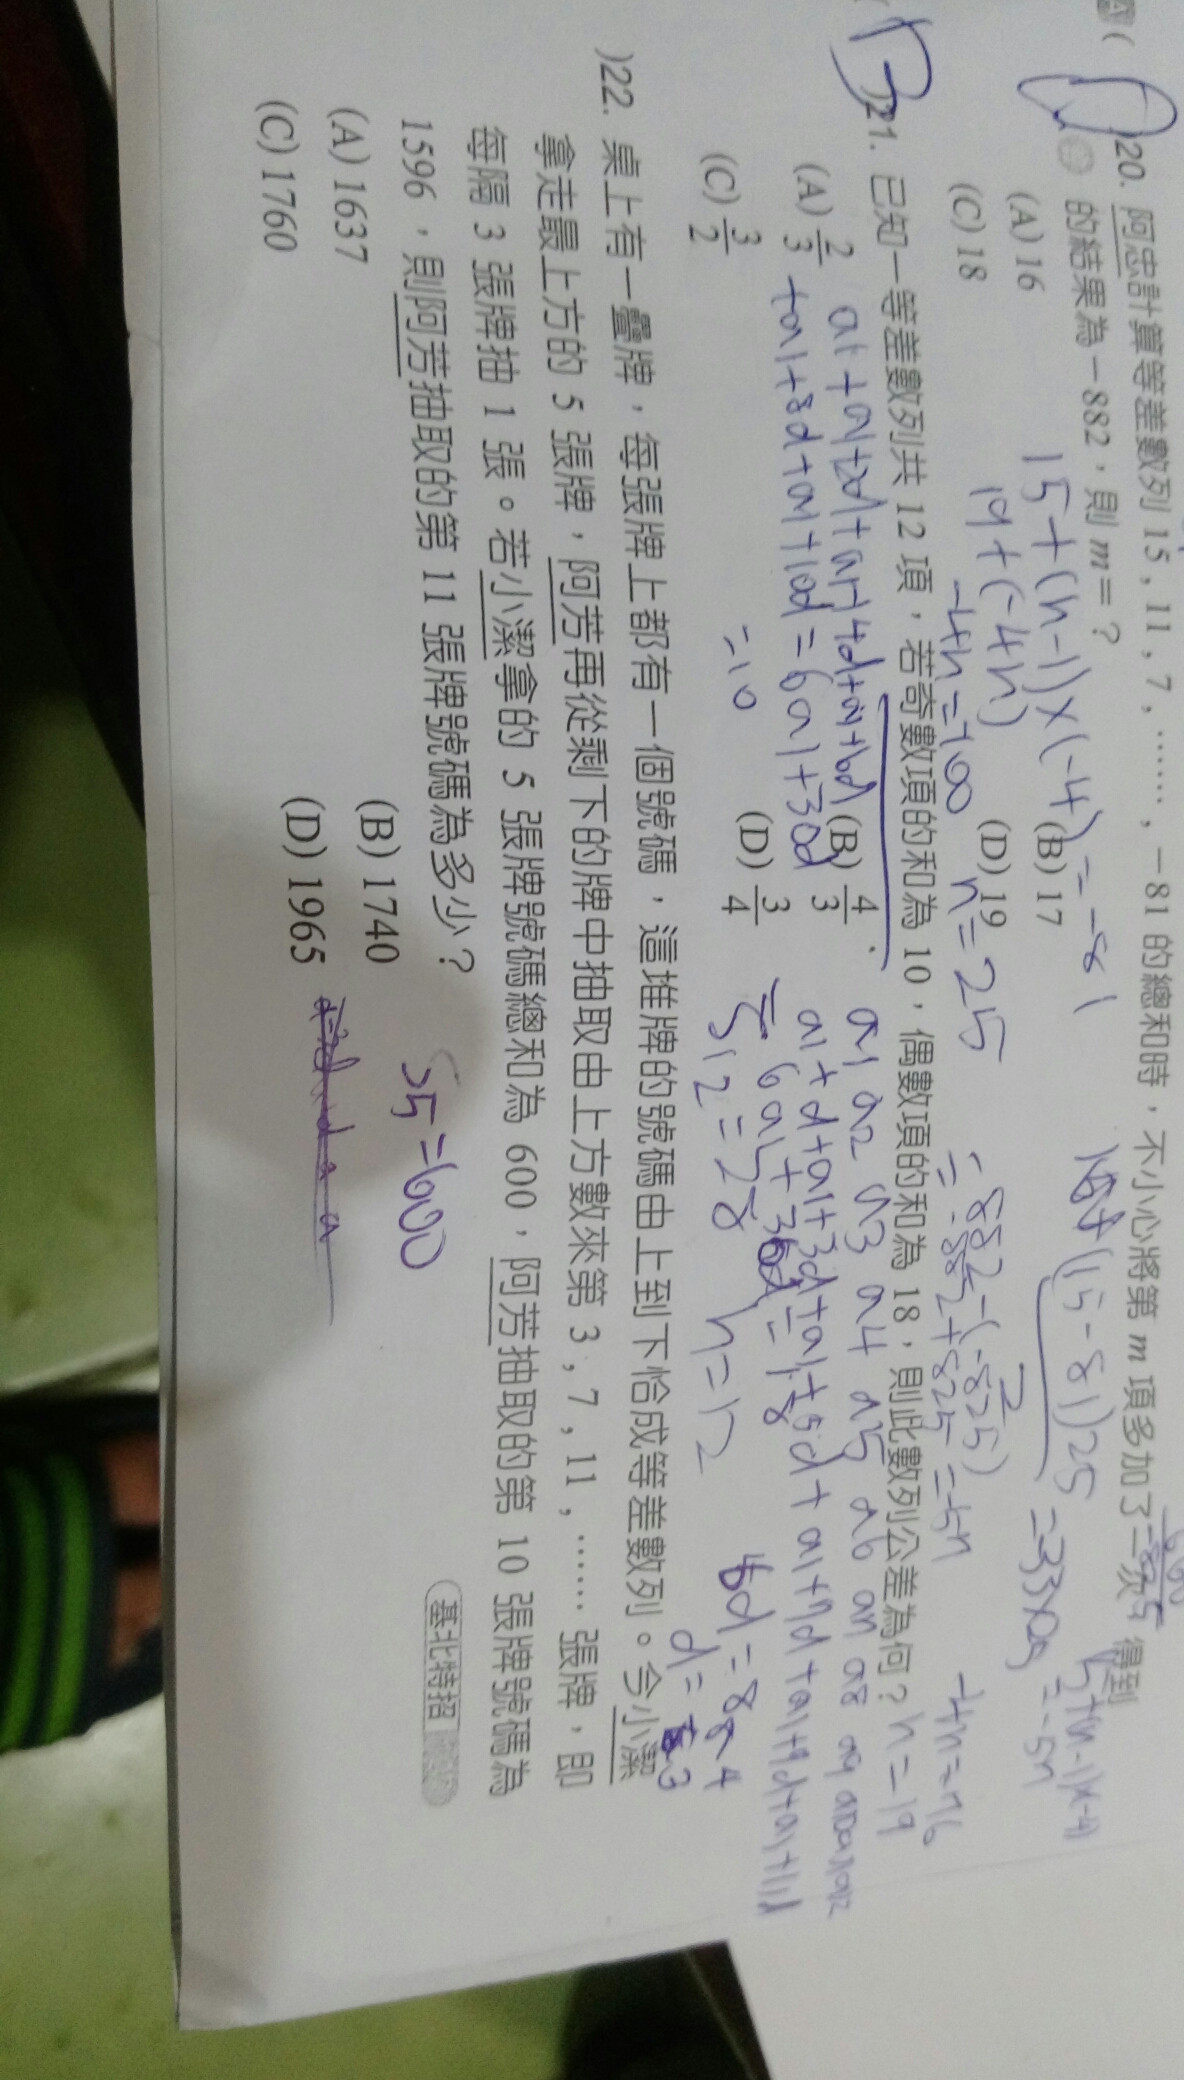 20. 阿忠計算等差數列 15 , 11 , 7 , …… , －81 的總和時，不小心將第 m 項多加了一次，得到
的結果為－882，則 m＝？
(A) 16 (B) 17
(C) 18 (D) 19
15+(n-1)×(-4)=-81
19+(-4n)
-4n=-100
n=25
21. 已知一等差數列共 12 項，若奇數項的和為 10，偶數項的和為 18，則此數列公差為何？
(A) 2/3 (B) 4/3
(C) 3/2 (D) 3/4
a1+a1+2d+a1+4d+a1+6d
+a1+8d+a1+10d=6a1+30d
=10
a1 a2 a3 a4 a5 a6 a7 a8 a9 a10 a11 a12
a1+d+a1+3d+a1+5d+a1+7d+a1+9d+a1+11d
=6a1+36d=18
S12=28 n=12
6d=8
)22. 桌上有一疊牌，每張牌上都有一個號碼，這堆牌的號碼由上到下恰成等差數列。今小潔
拿走最上方的 5 張牌，阿芳再從剩下的牌中抽取由上方數來第 3 , 7 , 11 , …… 張牌，即
每隔 3 張牌抽 1 張。若小潔拿的 5 張牌號碼總和為 600，阿芳抽取的第 10 張牌號碼為
1596，則阿芳抽取的第 11 張牌號碼為多少？ 基北特招
(A) 1637 (B) 1740
(C) 1760 (D) 1965
S5=600